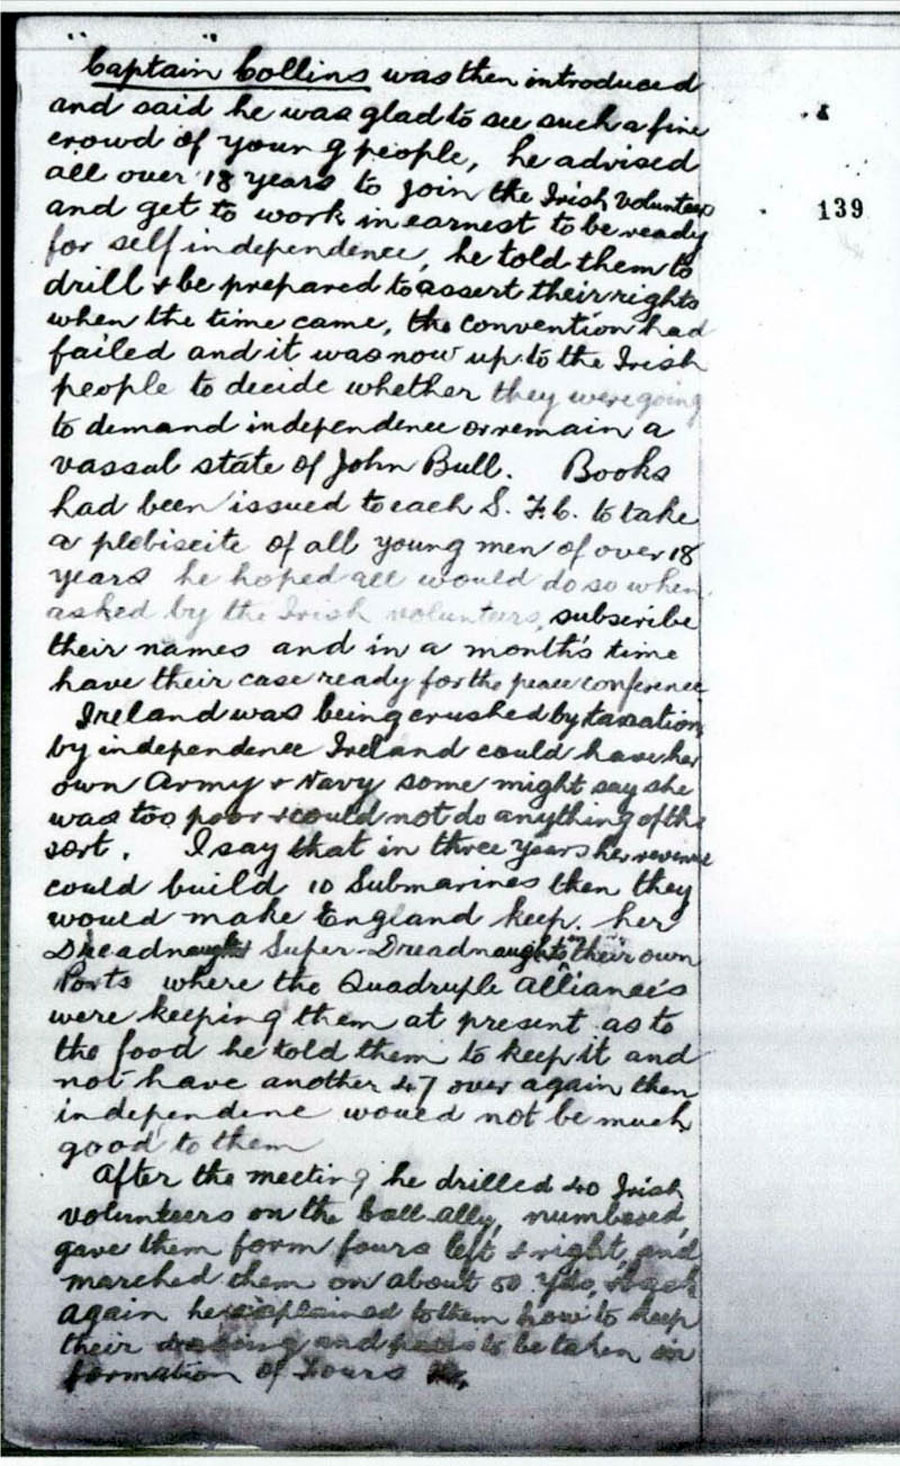 "Captain" Collins was then introduced
and said he was glad to see such a fine
crowd of young people, he advised
all over 18 years to join the Irish Volunteers
and get to work in earnest to be ready
for self independence, he told them to
drill & be prepared to assert their rights
when the time came, the convention had
failed and it was now up to the Irish
people to decide whether they were going
to demand independence or remain a
vassal state of John Bull. Books
had been issued to each S. F. C. to take
a plebiscite of all young men of over 18
years he hoped all would do so when
asked by the Irish volunteers, subscribe
their names and in a month's time
have their case ready for the peace conference
Ireland was being crushed by taxation,
by independence Ireland could have her
own Army & Navy some might say she
was too poor & could not do anything of the
sort. I say that in three years her revenue
could build 10 Submarines then they
would make England keep her
Dreadnaughts Super-Dreadnaughts in their own
Ports where the Quadruple Alliance's
were keeping them at present as to
the food he told them to keep it and
not have another 47 over again then
independene would not be much
good to them
After the meeting he drilled 40 Irish
volunteers on the ball ally, numbered,
gave them form fours left & right, and
marched them on about 50 yds, & back
again he explained to them how to keep
their dressing and to be taken in
formation of Fours
139